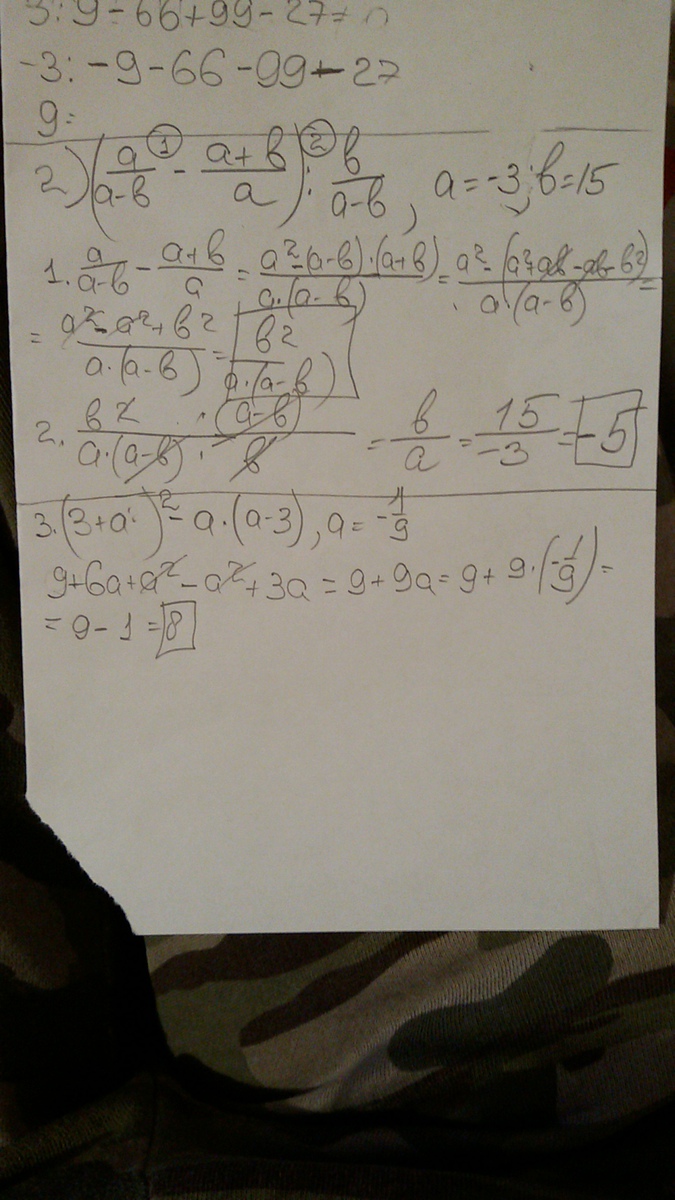 3: 9 - 66 + 99 - 27 = 0
-3: -9 - 66 - 99 - 27
9:
2) (a/(a-в) ① - (a+в)/a) ② : в/(a-в), a = -3; в = 15
1. a/(a-в) - (a+в)/a = (a² - (a-в)·(a+в))/(a·(a-в)) = (a² - (a² + aв - aв - в²))/(a·(a-в)) =
= (a² - a² + в²)/(a·(a-в)) = в²/(a·(a-в))
2. (в² · (a-в))/(a·(a-в) · в) = в/a = 15/-3 = -5
3. (3+a)² - a·(a-3), a = -1/9
9 + 6a + a² - a² + 3a = 9 + 9a = 9 + 9·(-1/9) =
= 9 - 1 = 8